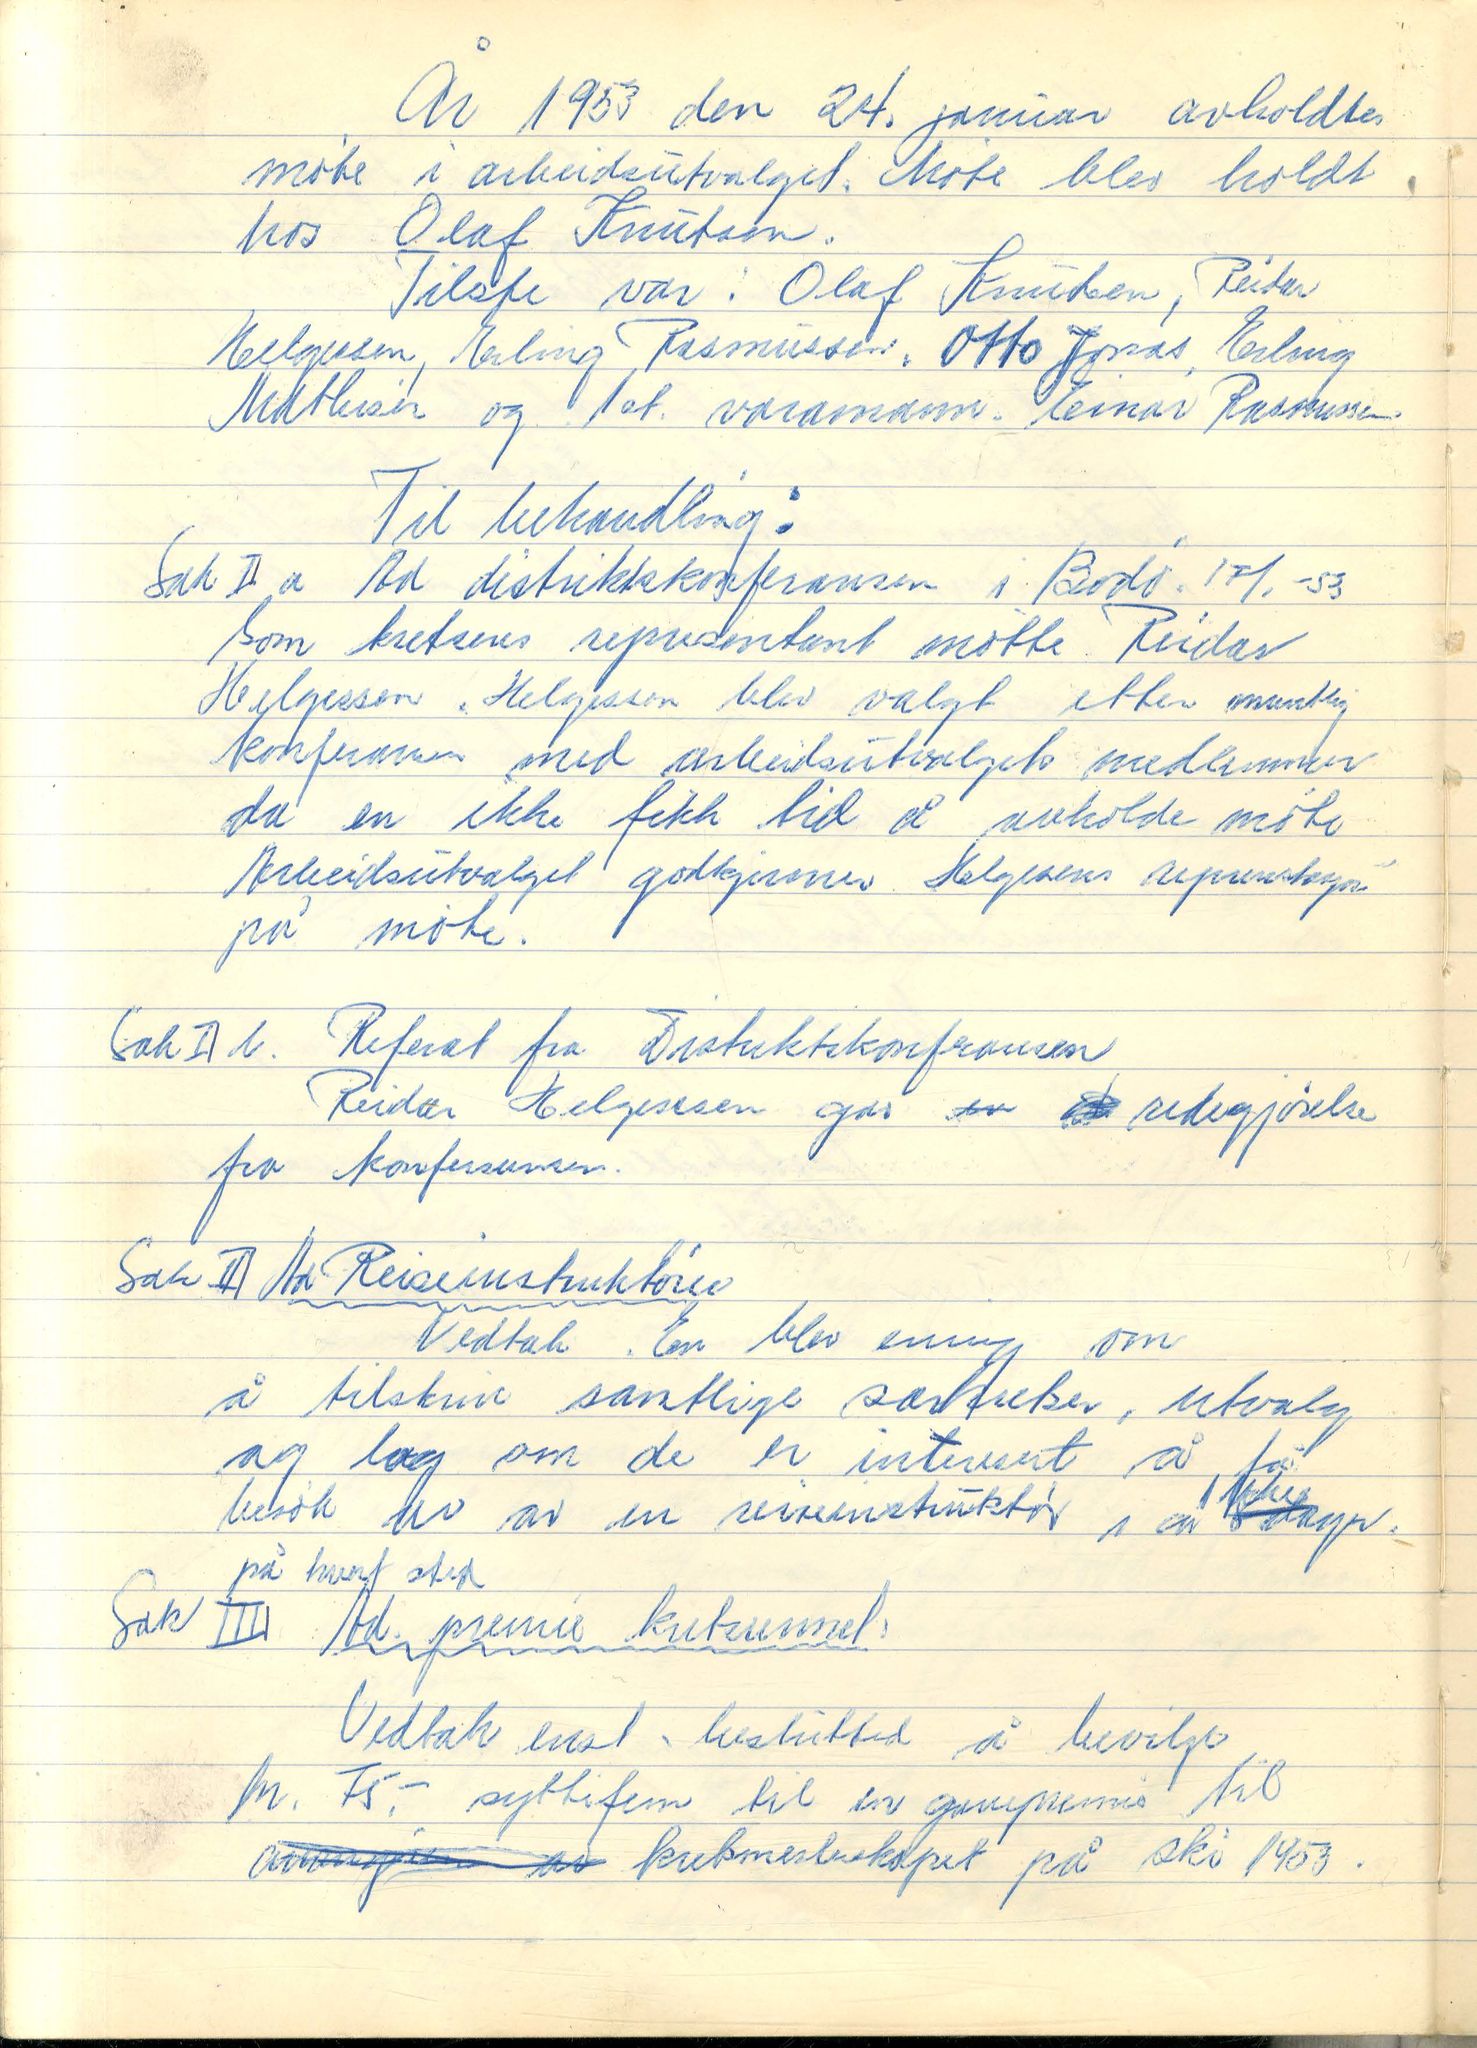 År 1953 den 24. januar avholdtes
möte i arbeidsutvalget. Möte blev holdt
hos Olaf Knutsen.
Tilste var: Olaf Knutsen, Reidar
Helgessen, Erling Rasmussen, Otto Jonas, Erling
Mathisen og 1st. varamann. Einar Rasmussen.
Til behandling:
Sak I a Ad distriktskonferansen i Bodö. -53
Som kretsens representant mötte Reidar
Helgessen. Helgessen blev valgt etter muntlig
konferanse med arbeidsutvalgets medlemmer
da en ikke fikk tid å avholde möte
Arbeidsutvalget godkjenner Helgesens
på möte.
Sak I b. Referat fra Distriktskonfransen
Reidar Helgessen gav en redegjörelse
fra konferansen.
Sak II Ad Reiseinstruktörer
Vedtak. En blev enig om
å tilskrive samtlige særkretser, utvalg
og lag om de er interesert å få
besök av av en reiseinstruktör i en
på hvert sted
Sak III Ad. premie kretsrennet.
Vedtak enst. beslutted å bevilge
kr. 75,- syttifem til en gavepremie til
kretsmesterskapet på ski 1953.